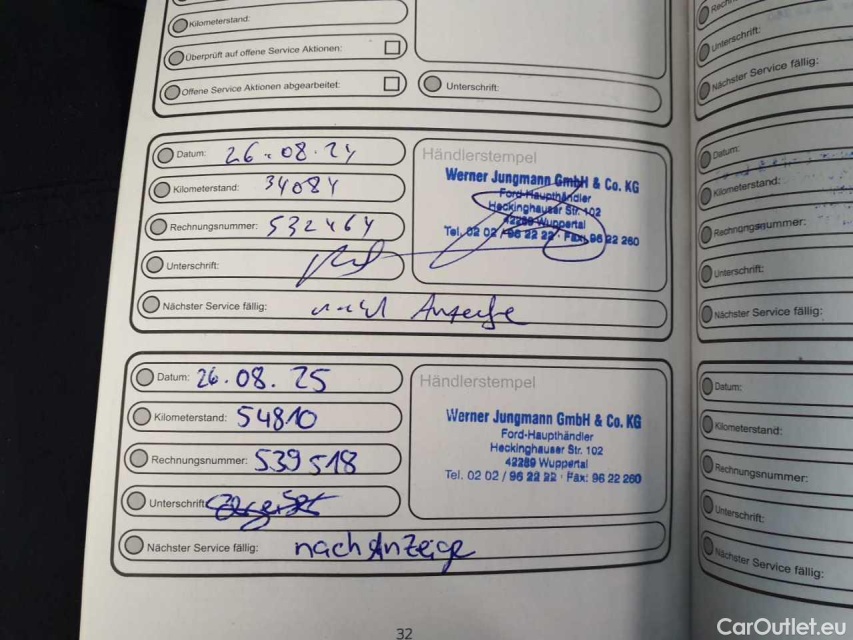 Kilometerstand:
Überprüft auf offene Service Aktionen:
Offene Service Aktionen abgearbeitet:
Unterschrift:
Datum: 26.08.24
Kilometerstand: 34084
Rechnungsnummer: 532464
Unterschrift:
Nächster Service fällig: nach Anzeige
Händlerstempel
Werner Jungmann GmbH & Co. KG
Ford-Haupthändler
Heckinghauser Str. 102
42289 Wuppertal
Tel. 02 02 / 96 22 22 · Fax: 96 22 260
Datum: 26.08.25
Kilometerstand: 54810
Rechnungsnummer: 539518
Unterschrift:
Nächster Service fällig: nach Anzeige
Händlerstempel
Werner Jungmann GmbH & Co. KG
Ford-Haupthändler
Heckinghauser Str. 102
42289 Wuppertal
Tel. 02 02 / 96 22 22 · Fax: 96 22 260
32
Unterschrift:
Nächster Service fällig:
Datum:
Kilometerstand:
Rechnungsnummer:
Unterschrift:
Nächster Service fällig:
Datum:
Kilometerstand:
Rechnungsnummer:
Unterschrift:
Nächster Service fällig:
CarOutlet.eu